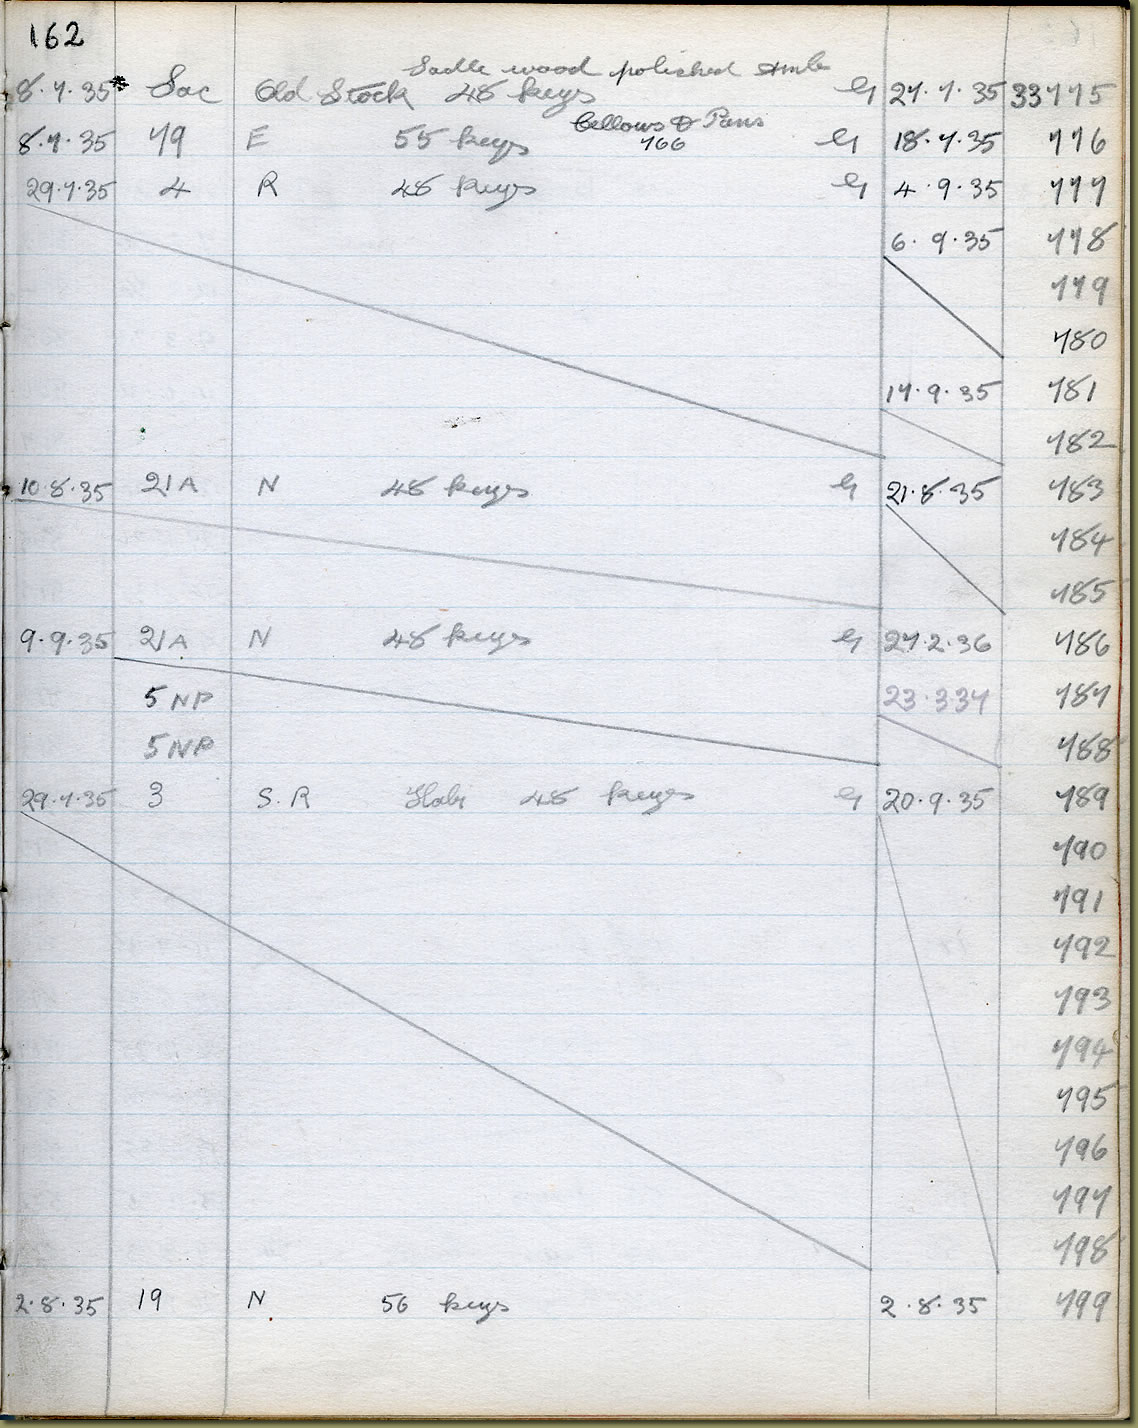 162
polished
8.7.35 Old Stock 48 keys G 27.7.35 33775
bellows & Pans
8.7.35 79 E 55 keys 766 G 18.7.35 776
29.7.35 4 R 48 keys G 4.9.35 777
6.9.35 778
779
780
17.9.35 781
782
10.8.35 21A N 48 keys G 21.8.35 783
784
785
9.9.35 21A N 48 keys G 27.2.36 786
5 NP 23.3.37 787
5 NP 788
29.7.35 3 S.R 48 keys G 20.9.35 789
790
791
792
793
794
795
796
797
798
2.8.35 19 N 56 keys 2.8.35 799